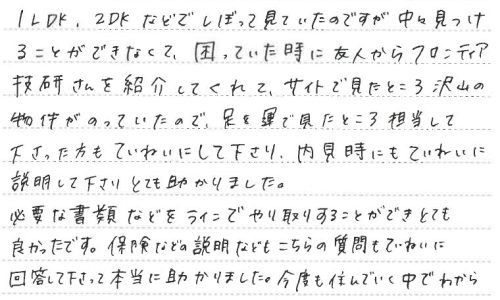 1LDK、2DKなどでしぼって見ていたのですが中々見つけ
ることができなくて、困っていた時に友人からフロンティア
技研さんを紹介してくれて、サイトで見たところ沢山の
物件がのっていたので、足を運で見たところ担当して
下さった方もていねいにして下さり、内見時にもていねいに
説明して下さりとても助かりました。
必要な書類などをラインでやり取りすることができとても
良かったです。保険などの説明などもこちらの質問もていねいに
回答して下さって本当に助かりました。今度も住んでいく中でわから